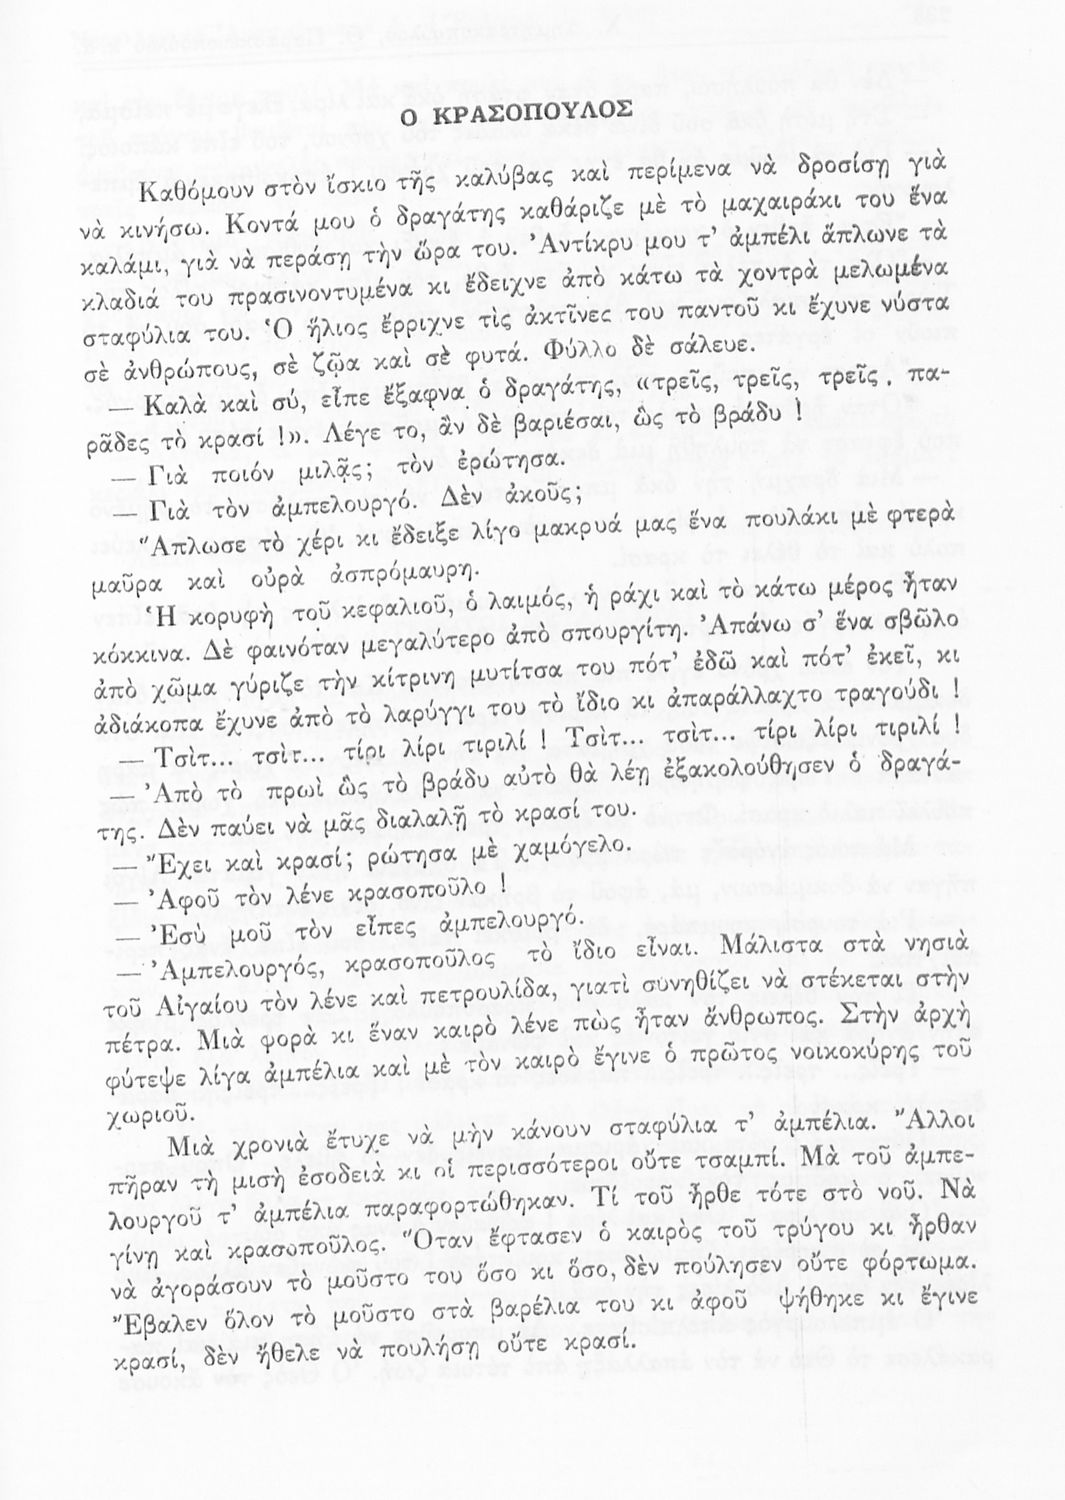 Ο ΚΡΑΣΟΠΟΥΛΟΣ
Καθόμουν στὸν ἴσκιο τῆς καλύβας καὶ περίμενα νὰ δροσίσῃ γιὰ
νὰ κινήσω. Κοντά μου ὁ δραγάτης καθάριζε μὲ τὸ μαχαιράκι του ἕνα
καλάμι, γιὰ νὰ περάσῃ τὴν ὥρα του. Ἀντίκρυ μου τ' ἀμπέλι ἅπλωνε τὰ
κλαδιά του πρασινοντυμένα κι ἔδειχνε ἀπὸ κάτω τὰ χοντρὰ μελωμένα
σταφύλια του. Ὁ ἥλιος ἔρριχνε τὶς ἀκτῖνες του παντοῦ κι ἔχυνε νύστα
σὲ ἀνθρώπους, σὲ ζῷα καὶ σὲ φυτά. Φύλλο δὲ σάλευε.
— Καλὰ καὶ σύ, εἶπε ἔξαφνα ὁ δραγάτης, «τρεῖς, τρεῖς, τρεῖς. πα-
ρᾶδες τὸ κρασί !». Λέγε το, ἂν δὲ βαριέσαι, ὣς τὸ βράδυ !
— Γιὰ ποιόν μιλᾷς; τὸν ἐρώτησα.
— Γιὰ τὸν ἀμπελουργό. Δὲν ἀκοῦς;
Ἅπλωσε τὸ χέρι κι ἔδειξε λίγο μακρυά μας ἕνα πουλάκι μὲ φτερὰ
μαῦρα καὶ οὐρὰ ἀσπρόμαυρη.
Ἡ κορυφὴ τοῦ κεφαλιοῦ, ὁ λαιμός, ἡ ράχι καὶ τὸ κάτω μέρος ἦταν
κόκκινα. Δὲ φαινόταν μεγαλύτερο ἀπὸ σπουργίτη. Ἀπάνω σ' ἕνα σβῶλο
ἀπὸ χῶμα γύριζε τὴν κίτρινη μυτίτσα του πότ' ἐδῶ καὶ πότ' ἐκεῖ, κι
ἀδιάκοπα ἔχυνε ἀπὸ τὸ λαρύγγι του τὸ ἴδιο κι ἀπαράλλαχτο τραγούδι !
— Τσὶτ... τσὶτ... τίρι λίρι τιριλί ! Τσὶτ... τσὶτ... τίρι λίρι τιριλί !
— Ἀπὸ τὸ πρωὶ ὣς τὸ βράδυ αὐτὸ θὰ λέῃ ἐξακολούθησεν ὁ δραγά-
της. Δὲν παύει νὰ μᾶς διαλαλῇ τὸ κρασί του.
— Ἔχει καὶ κρασί; ρώτησα μὲ χαμόγελο.
— Ἀφοῦ τὸν λένε κρασοποῦλο !
— Ἐσὺ μοῦ τὸν εἶπες ἀμπελουργό.
— Ἀμπελουργός, κρασοποῦλος τὸ ἴδιο εἶναι. Μάλιστα στὰ νησιὰ
τοῦ Αἰγαίου τὸν λένε καὶ πετρουλίδα, γιατὶ συνηθίζει νὰ στέκεται στὴν
πέτρα. Μιὰ φορὰ κι ἕναν καιρὸ λένε πὼς ἦταν ἄνθρωπος. Στὴν ἀρχὴ
φύτεψε λίγα ἀμπέλια καὶ μὲ τὸν καιρὸ ἔγινε ὁ πρῶτος νοικοκύρης τοῦ
χωριοῦ.
Μιὰ χρονιὰ ἔτυχε νὰ μὴν κάνουν σταφύλια τ' ἀμπέλια. Ἄλλοι
πῆραν τὴ μισὴ ἐσοδειὰ κι οἱ περισσότεροι οὔτε τσαμπί. Μὰ τοῦ ἀμπε-
λουργοῦ τ' ἀμπέλια παραφορτώθηκαν. Τί τοῦ ἦρθε τότε στὸ νοῦ. Νὰ
γίνῃ καὶ κρασοποῦλος. Ὅταν ἔφτασεν ὁ καιρὸς τοῦ τρύγου κι ἦρθαν
νὰ ἀγοράσουν τὸ μοῦστο του ὅσο κι ὅσο, δὲν πούλησεν οὔτε φόρτωμα.
Ἔβαλεν ὅλον τὸ μοῦστο στὰ βαρέλια του κι ἀφοῦ ψήθηκε κι ἔγινε
κρασί, δὲν ἤθελε νὰ πουλήσῃ οὔτε κρασί.